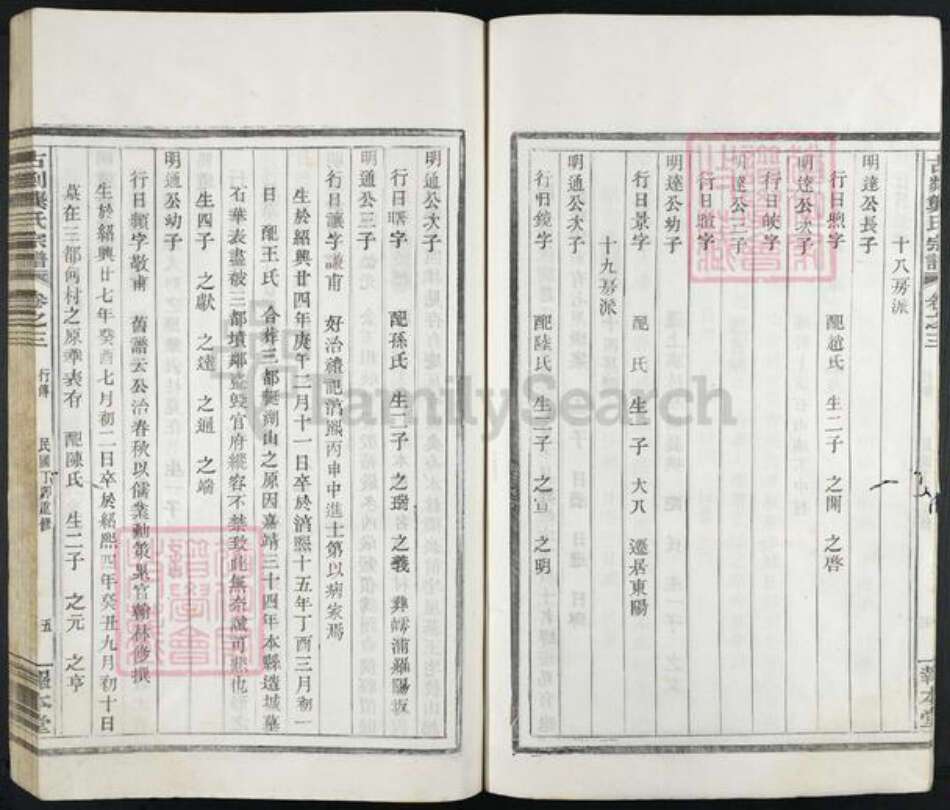 十八房派
明達公長子
行日煦字 配趙氏 生二子 之開 之啓
明達公次子
行日皎字
明達公三子
行日暄字
明達公幼子
行日景字 配 氏 生一子 大八 遷居東陽
十九房派
明通公次子
行日鏡字 配陸氏 生二子 之宣 之明
報本堂
明通公次子
行日曙字 配孫氏 生二子 之瑞 之義 葬嶀浦羅陽坂
明通公三子
行日讓字謙甫 好治禮記淳熙丙申中進士第以病家焉
生於紹興廿四年庚午二月十一日卒於淳熙十五年丁酉三月初一
日 配王氏 合葬三都艇湖山之原因嘉靖三十四年本縣造城墓
石華表盡被三都墳鄰 毀官府縱容不禁致此無奈誠可悲也
生四子 之獻 之達 之通 之端
明通公幼子
行日顯字敬甫 舊譜云公治春秋以儒業勳策果官翰林修撰
生於紹興廿七年癸酉七月初二日卒於紹熙四年癸丑九月初十日
墓在三都何村之原華表存 配陳氏 生二子 之元 之亨
古剡 氏宗譜 卷之三 行傳 民國丁卯重修 五 報本堂
FamilySearch